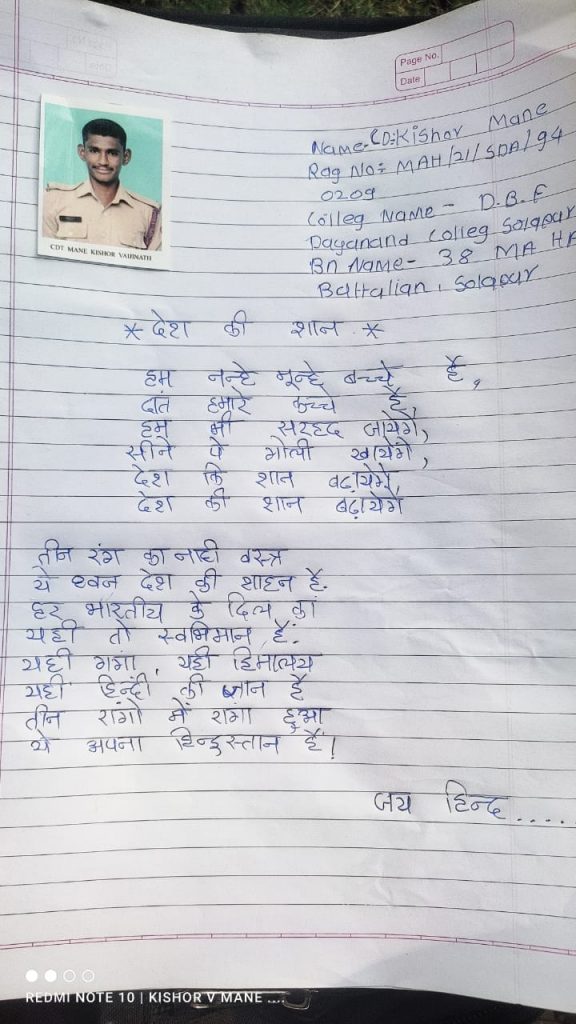 Page No.
Date
Name- CDt Kishor Mane
Rag No: MAH/21/SDA/94
0209
Colleg Name - D.B.F
Dayanand Colleg Solapur
Bn Name- 38 MAHA
Battalian, Solapur
CDT MANE KISHOR VAIJINATH
* देश की शान *
हम नन्हे मून्हे बच्चे है,
दांत हमारे कच्चे है,
हम भी सरहद जायेगे,
सीने पे गोली खायेगे,
देश कि शान बढायेगे,
देश की शान बढ़ायेगे
तीन रंग का नाही वस्त्र
ये ध्वज देश की शाहन है.
हर भारतीय के दिल का
यही तो स्वभिमान है.
यही गंगा, यही हिमालय
यही हिन्दी की जान है
तीन रांगो में रांगा हुआ
ये अपना हिन्दुस्तान है!
जय हिन्द....
REDMI NOTE 10 | KISHOR V MANE ....